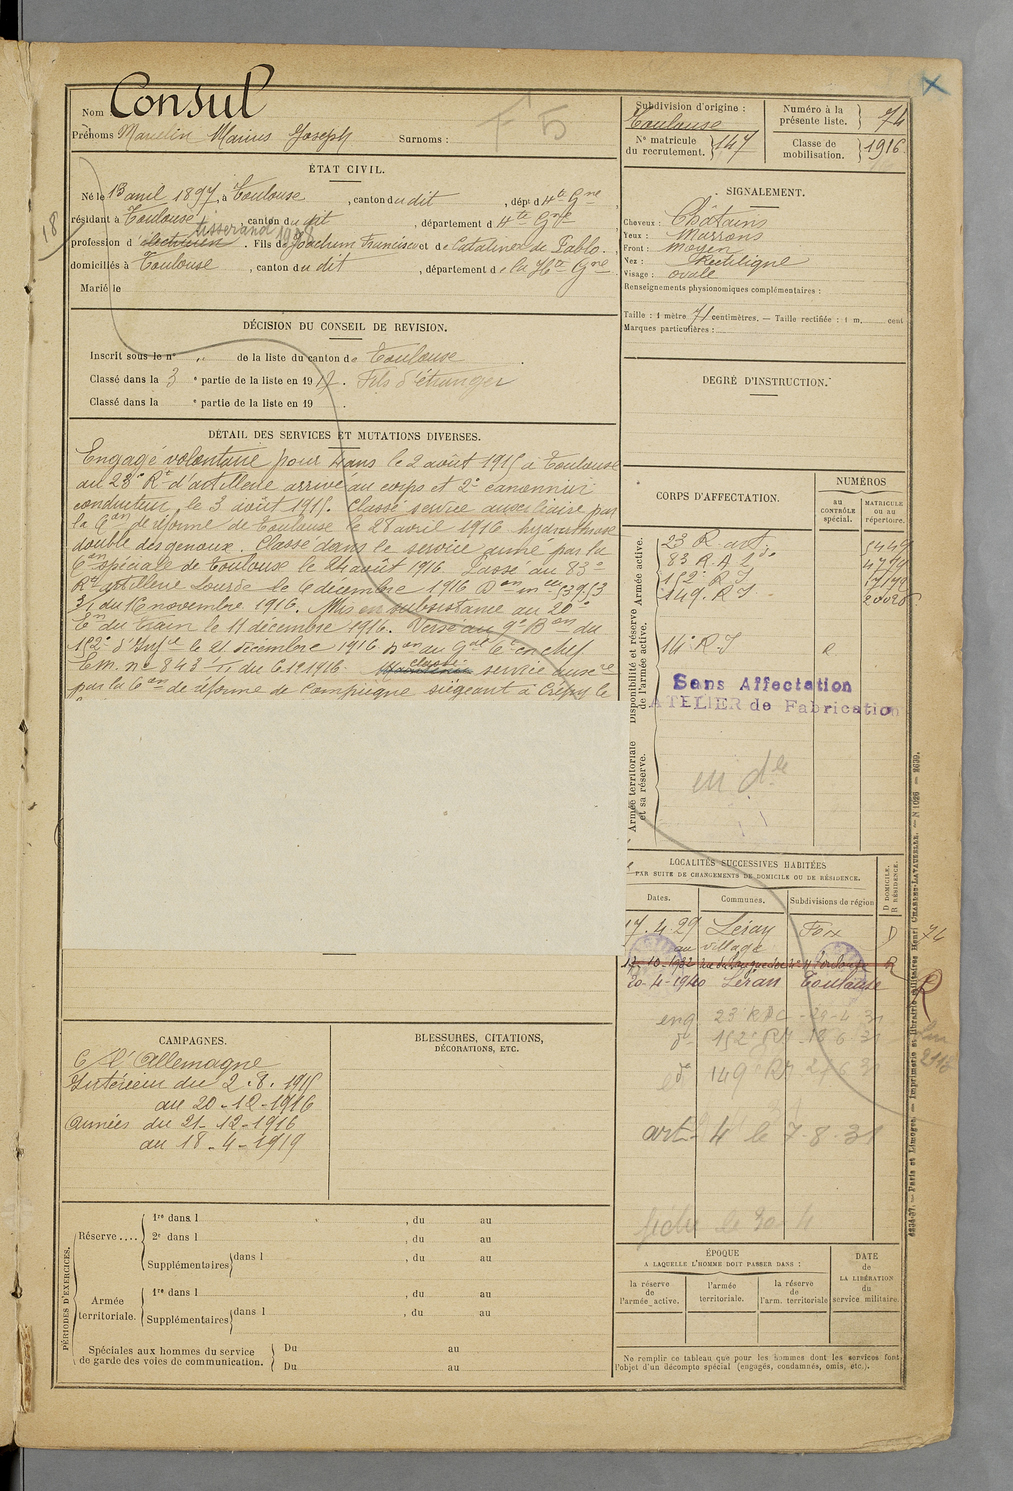 Nom Consul
Prénoms Marcelin Marius Joseph Surnoms :
F 5
ÉTAT CIVIL.
Né le 13 avril 1897, à Toulouse, canton du dit, dépt d Hte Gne
résidant à Toulouse, canton du dit, département d Hte Gne
tisserand 1928
profession d'électricien. Fils de Joachim Francisco et de Catalina de Pablo.
domiciliés à Toulouse, canton du dit, département de la Hte Gne
Marié le
18
DÉCISION DU CONSEIL DE REVISION.
Inscrit sous le n° „ de la liste du canton de Toulouse.
Classé dans la 3 e partie de la liste en 1917. Fils d'étranger
Classé dans la e partie de la liste en 19 .
DÉTAIL DES SERVICES ET MUTATIONS DIVERSES.
Engagé volontaire pour 4 ans le 2 août 1915 à Toulouse
au 23e Rt d'artillerie arrivé au corps et 2e canonnier
conducteur le 3 août 1915. Classé service auxiliaire par
la Con de réforme de Toulouse le 28 avril 1916 hydarthrose
double des genoux. Classé dans le service armé par la
Con spéciale de Toulouse le 24 août 1916. Passé au 83e
Rt artillerie Lourde le 6 décembre 1916 Don mlle 53953
3/1 du 16 novembre 1916. Mis en subsistance au 20e
Eon du train le 11 décembre 1916. Versé au 9e Bon du
152e d'Infie le 21 décembre 1916 Don du Gal Ct en chef
E.M. n° 843 du 6.12.1916. Maintenu classé service auxre
par la Con de réforme de Compiègne siégeant à Crépy le
CAMPAGNES.
C/ l'Allemagne
Intérieur du 2.8.1915
au 20-12-1916
Armées du 21-12-1916
au 18-4-1919
BLESSURES, CITATIONS,
DÉCORATIONS, ETC.
PÉRIODES D'EXERCICES.
Réserve ....
1re dans l , du au
2e dans l , du au
Supplémentaires dans l , du au
Armée territoriale.
1re dans l , du au
Supplémentaires dans l , du au
Spéciales aux hommes du service
de garde des voies de communication.
Du au
Du au
Subdivision d'origine :
Toulouse
Numéro à la
présente liste. 74
N° matricule
du recrutement. 147
Classe de
mobilisation. 1916
SIGNALEMENT.
Cheveux : Châtains
Yeux : Marrons
Front : moyen
Nez : Rectiligne
Visage : ovale
Renseignements physionomiques complémentaires :
Taille : 1 mètre 71 centimètres. — Taille rectifiée : 1 m. cent
Marques particulières :
DEGRÉ D'INSTRUCTION.
CORPS D'AFFECTATION.
NUMÉROS
AU CONTRÔLE spécial.
MATRICULE OU AU répertoire.
Armée active.
23 R. art. 5449
83 R A L 4779
152e R I
149. R I
Disponibilité et réserve de l'armée active.
14e R I R
Sans Affectation
ATELIER de Fabrication
Armée territoriale et sa réserve.
en dle
LOCALITÉS SUCCESSIVES HABITÉES
PAR SUITE DE CHANGEMENTS DE DOMICILE OU DE RÉSIDENCE.
Dates. Communes. Subdivisions de région
D DOMICILE. R RÉSIDENCE.
17.4.29 Léran Foix D
au village
12-10-1932 rue du Languedoc n° 4 Toulouse R
20-4-1940 Léran Toulouse
74
R
eng 23e RAC - 29-4 31
do 152e RI - 18 6 31
do 149e RI 2 6 31
art. 4 le 7-8.31
fiche le 30 4
ÉPOQUE
A LAQUELLE L'HOMME DOIT PASSER DANS :
la réserve de l'armée active.
l'armée territoriale.
la réserve de l'arm. territoriale
DATE de LA LIBÉRATION du service militaire.
Ne remplir ce tableau que pour les hommes dont les services font
l'objet d'un décompte spécial (engagés, condamnés, omis, etc.).
6234-37. — Paris et Limoges. — Imprimerie et librairie militaires Henri CHARLES-LAVAUZELLE. — N 1026 — 2639.